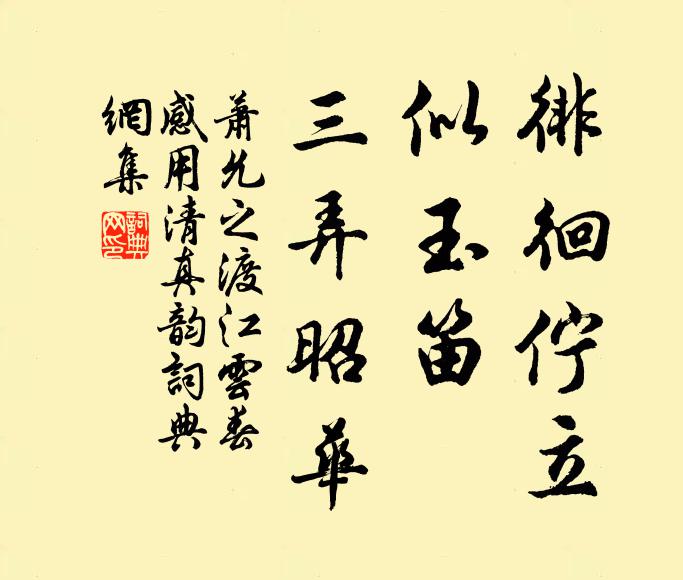 徘徊佇立
似玉笛
三弄昭華
蕭允之渡江雲春
感用清真韵詞典
網集
詞典網印